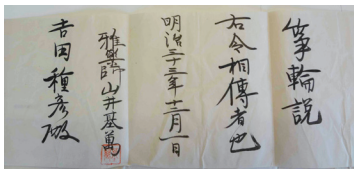 箏輪説
右令相傳者也
明治三十三年十二月一日
雅樂師 山井基萬
吉田種彦殿